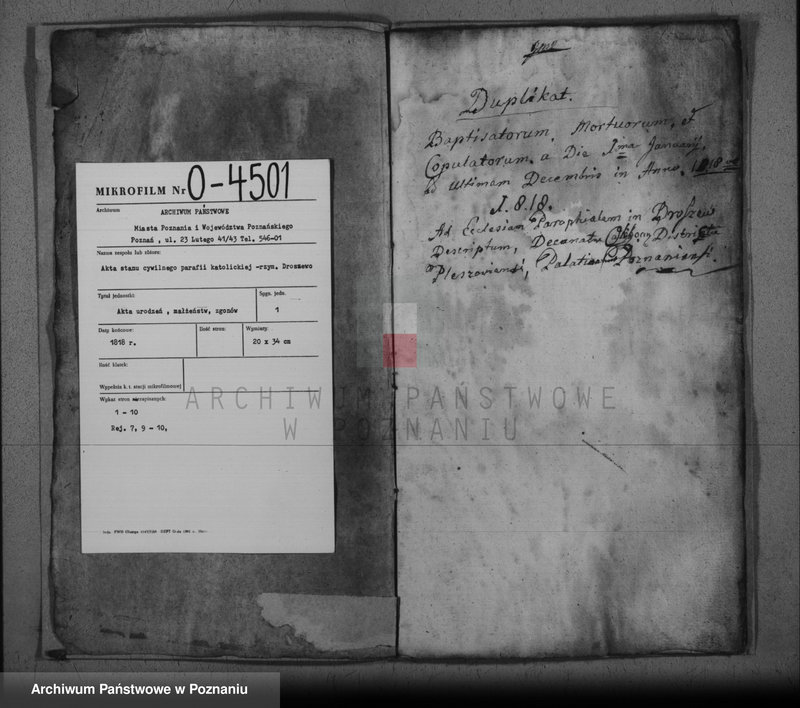 MIKROFILM Nr O-4501
Archiwum
ARCHIWUM PAŃSTWOWE
Miasta Poznania i Województwa Poznańskiego
Poznań, ul. 23 Lutego 41/43 Tel. 546-01
Nazwa zespołu lub zbioru:
Akta stanu cywilnego parafii katolickiej -rzym. Droszewo
Tytuł jednostki:
Akta urodzeń, małżeństw, zgonów
Sygn. jedn.
1
Daty końcowe:
1818 r.
Ilość stron:
Wymiary:
20 x 34 cm
Ilość klatek:
Wypełnia k. t. stacji mikrofilmowej
Wykaz stron niezapisanych:
1 - 10
Rej. 7, 9 - 10,
Duplikat.
Baptisatorum, Mortuorum, et
Copulatorum, a Die Ima Januarij,
ad Ultimam Decembris in Anno 1818
1.8.18.
Ad Ecclesiam Parochialem in Droszew
Descriptum, Decanatu Districtu
Pleszoviensi, Palatinatu Poznaniensi.
ARCHIWUM PAŃSTWOWE
W POZNANIU
Archiwum Państwowe w Poznaniu